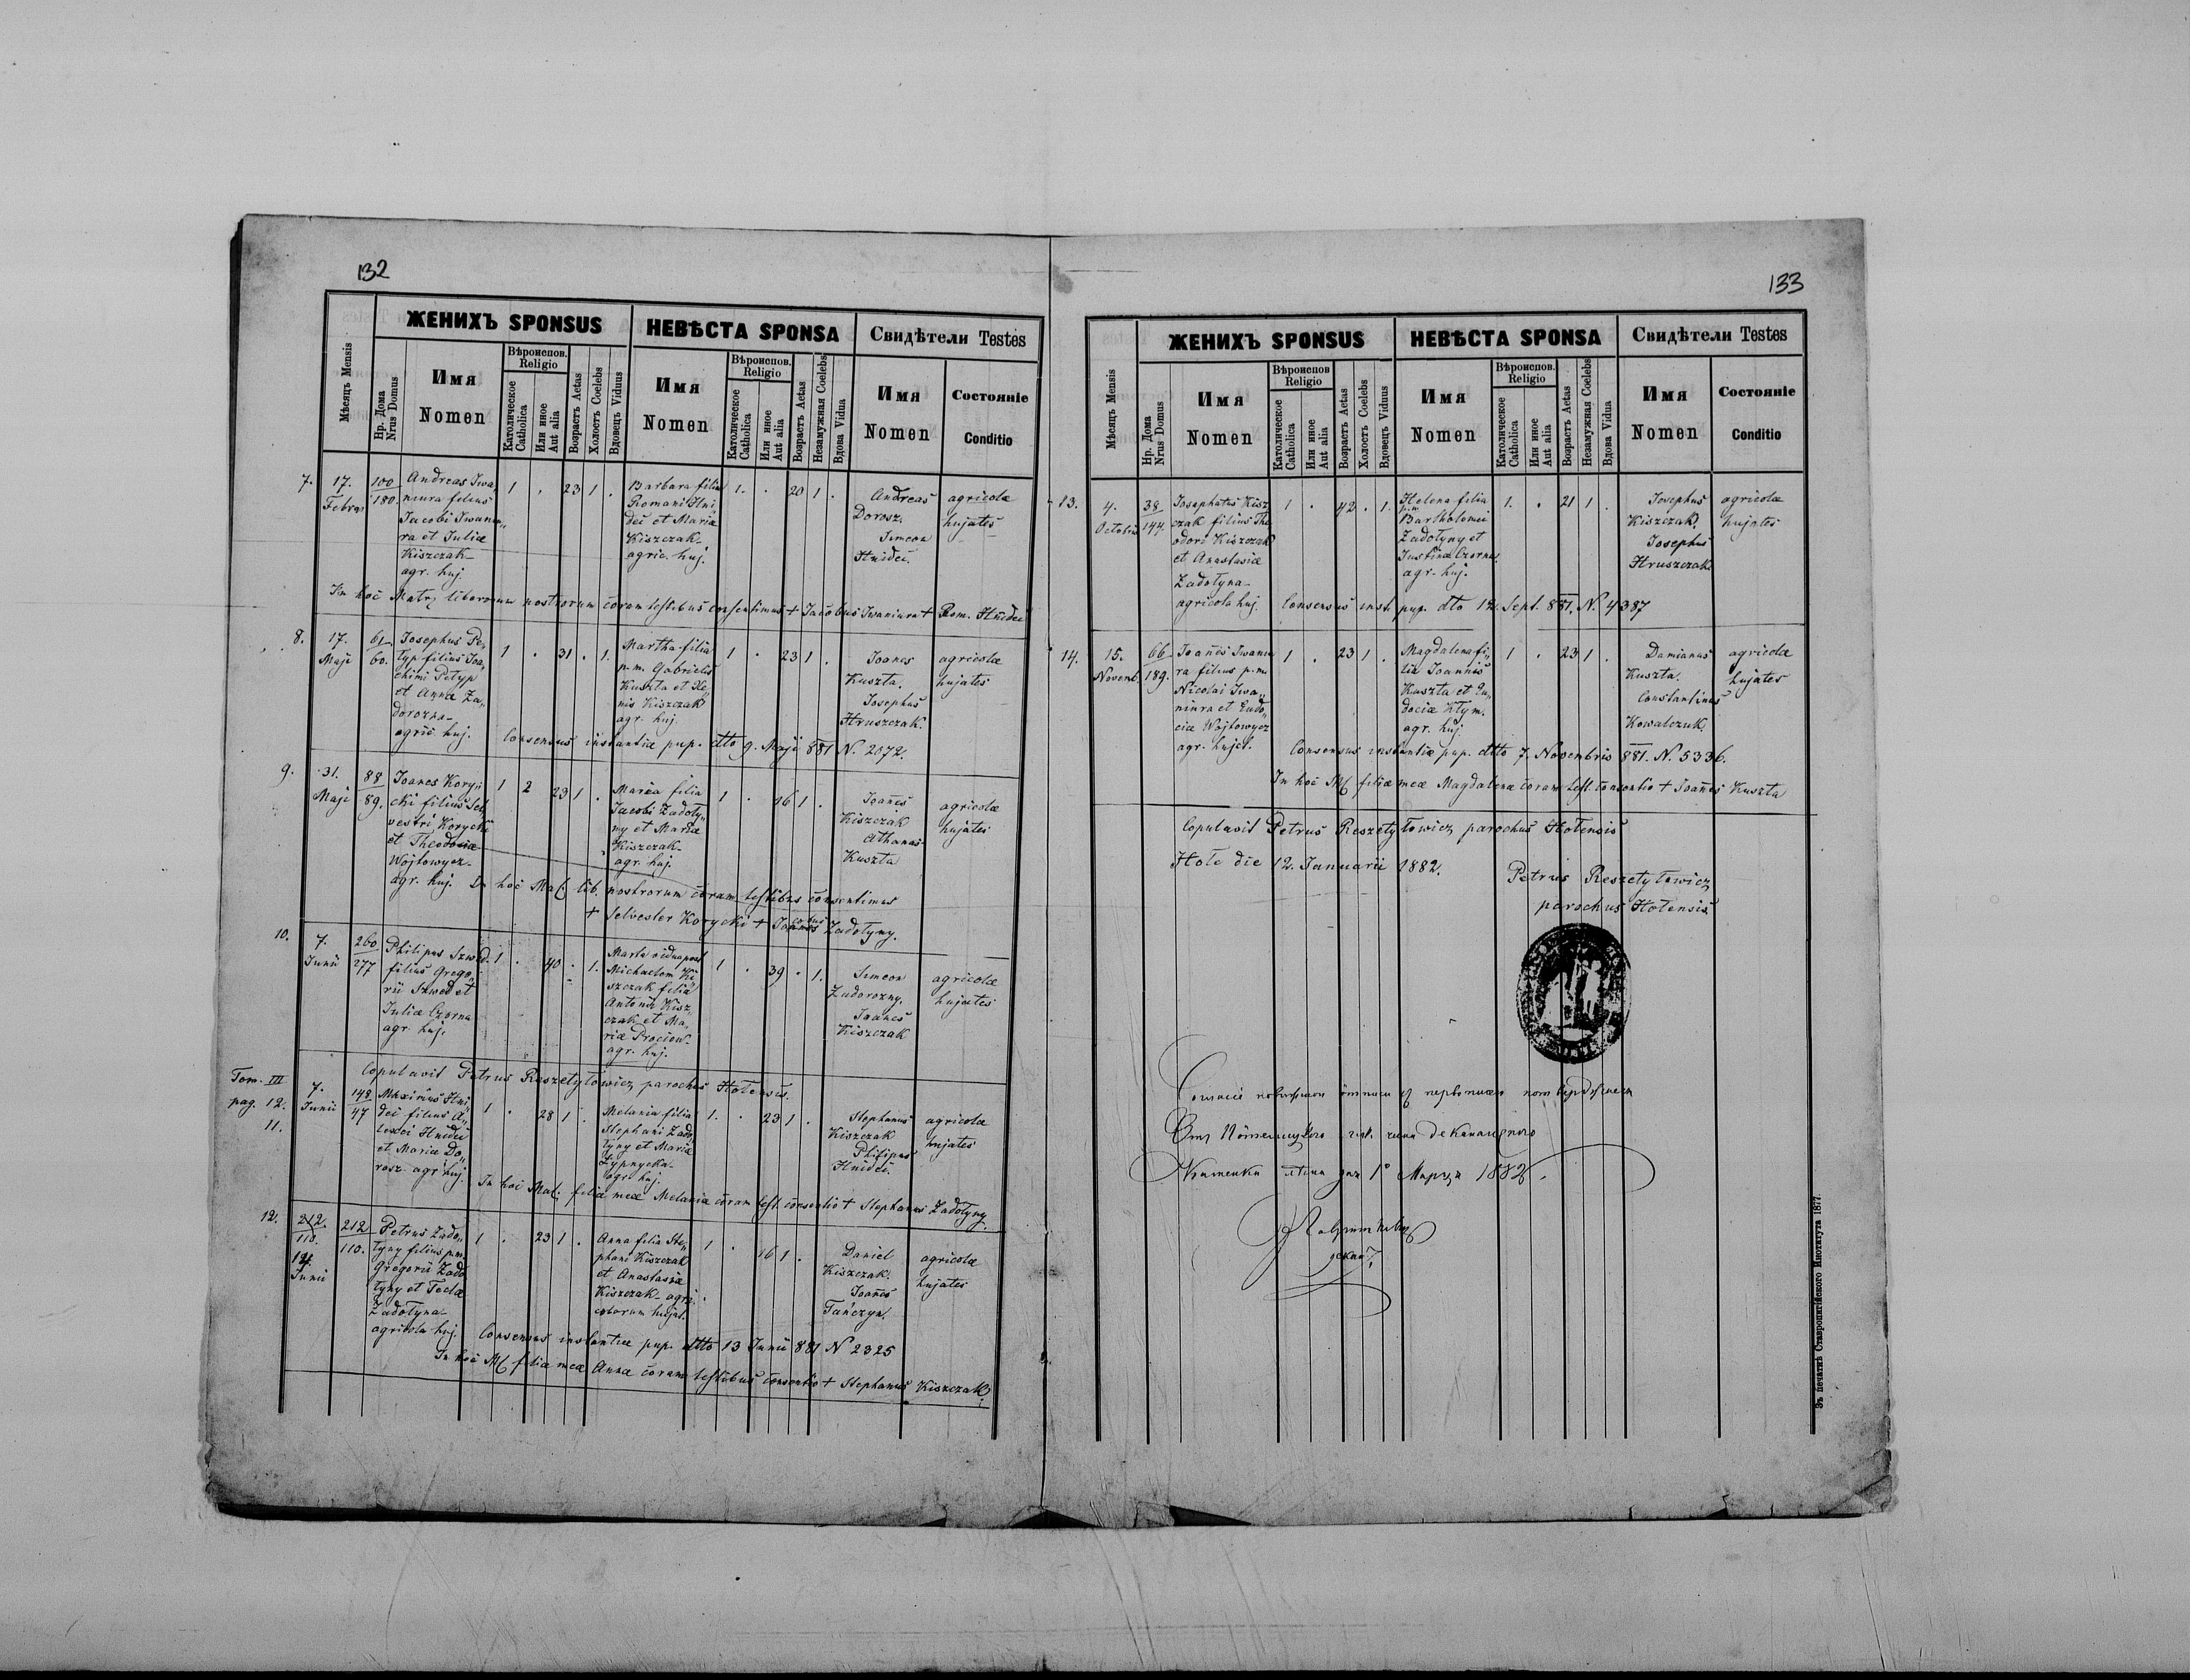 132
ЖЕНИХЪ SPONSUS
НЕВѢСТА SPONSA
Свидѣтели Testes
Мѣсяцъ Mensis
Нр. Дома
Nrus Domus
Имя
Nomen
Вѣроиспов.
Religio
Католическое
Catholica
Или иное
Aut alia
Возрастъ Aetas
Холостъ Coelebs
Вдовецъ Viduus
Имя
Nomen
Вѣроиспов.
Religio
Католическое
Catholica
Или иное
Aut alia
Возрастъ Aetas
Незамужная Coelebs
Вдова Vidua
Имя
Nomen
Состояніе
Conditio
7.
17.
Febru
100
180.
Andreas Iwa
niura filius
Jacobi Iwaniu„
ra et Juliæ
Kiszczak
agr. huj.
1 . 23 1 .
Barbara filia
Romani Hni
dei et Mariæ
Kiszczak
agric. huj.
1. . 20 1 .
Andreas
Dorosz.
Simeon
Hnidei.
agricolæ
hujates
In hoc Matr. liberorum nostrorum coram testibus consentimus + Jacobus Iwaniura + Rom. Hnidei
8.
17.
Maji
61
60.
Josephus Pe„
typ filius Joa„
chimi Petyp
et Anna Za„
dorozna
agric. huj.
1 . 31 . 1.
Martha filia
p. m. Gabrielis
Kuszta et Xe„
nis Kiszczak
agr. huj.
1 . 23 1 .
Joanes
Kuszta.
Josephus
Hruszczak.
agricolæ
hujates
Consensus instantiæ pup. dtto 9. Maji 881 N. 2072.
9.
31.
Maji
88
89.
Joanes Kory„
cki filius Sel„
vestri Korycki
et Theodosiæ
Wojtowycz
agr. huj.
1 2 23 1 .
Maria filia
Jacobi Zadoty„
ny et Mariæ
Kiszczak
agr. huj.
1 . 16 1 .
Joanes
Kiszczak
Athanas
Kuszta
agricolæ
hujates
In hoc Mat. lib. nostrorum coram testibus consentimus
+ Selvester Korycki + Jacobus Zadotyny.
10.
7.
Junii
260
277
Philipus Szwed
filius Grego„
rii Szwed et
Juliæ Czorna
agr. huj.
1 . 40 . 1.
Marta vidua post
Michaelem Ki
szczak filia
Antonii Kisz„
czak et Ma„
riæ Prociow
agr. huj.
1 . 39 . 1.
Simeon
Zadorozny.
Joanes
Kiszczak
agricolæ
hujates
Copulavit Petrus Reszetyłowicz parochus Hotensis.
Tom. III
pag. 12.
11.
7.
Junii
148
47
Maximus Hni
dei filius A„
lexei Hnidei
et Mariæ Do„
rosz agr. huj.
1 . 28 1 .
Melania filia
Stephani Zado„
tyny et Mariæ
Łypnycka
agr. huj.
1. . 23 1 .
Stephanus
Kiszczak
Philipus
Hnidei.
agricolæ
hujates
In hoc Mat. filiæ meæ Melaniæ coram test. consentio + Stephanus Zadotyny.
12.
212.
110.
14.
Junii
212
110.
Petrus Zado„
tyny filius p.m.
Gregorii Zado
tyny et Teclæ
Zadotyna
agricola huj.
1 . 23 1 .
Anna filia Ste„
phani Kiszczak
et Anastasiæ
Kiszczak agri„
colarum hujat.
1 . 16 1 .
Daniel
Kiszczak.
Joanes
Tańczyn.
agricolæ
hujates
Consensus instantiæ pup. dtto 13 Junii 881 N 2325
In hoc M. filiæ meæ Annæ coram testibus consentio + Stephanus Kiszczak.
133
ЖЕНИХЪ SPONSUS
НЕВѢСТА SPONSA
Свидѣтели Testes
Мѣсяцъ Mensis
Нр. Дома
Nrus Domus
Имя
Nomen
Вѣроиспов
Religio
Католическое
Catholica
Или иное
Aut alia
Возрастъ Aetas
Холостъ Coelebs
Вдовецъ Viduus
Имя
Nomen
Вѣроиспов.
Religio
Католическое
Catholica
Или иное
Aut alia
Возрастъ Aetas
Незамужная Coelebs
Вдова Vidua
Имя
Nomen
Состояніе
Conditio
13.
4.
Octobris
38
144.
Josaphatus Kisz
czak filius The
odori Kiszczak
et Anastasiæ
Zadotyna
agricola huj.
1 . 42 . 1.
Helena filia
p.m.
Bartholomei
Zadotyny et
Justinæ Czorna
agr. huj.
1. . 21 1 .
Josephus
Kiszczak.
Josephus
Hruszczak
agricolæ
hujates
Consensus inst. pup. dto 12. Sept. 881. N. 4387
14.
15.
Novemb.
66
189.
Joanes Iwaniu
ra filius p.m.
Nicolai Iwa„
niura et Eudo„
ciæ Wojtowycz
agr. hujat.
1 . 23 1 .
Magdalena fi„
lia Joannis
Kuszta et Eu„
dociæ Kłym.
agr. huj.
1 . 23 1 .
Damianus
Kuszta.
Constantinus
Kowalczuk.
agricolæ
hujates
Consensus instantiæ pup. dtto 7. Novembris 881. N. 5336.
In hoc M. filiæ meæ Magdalenæ coram test. consentio + Joanes Kuszta
Copulavit Petrus Reszetyłowicz parochus Hotensis
Hole die 12. Januarii 1882.
Petrus Reszetyłowicz
parochus Hotensis
дня 1° Марця 1882.
Зъ печатнѣ Ставропигійского Института 1877.